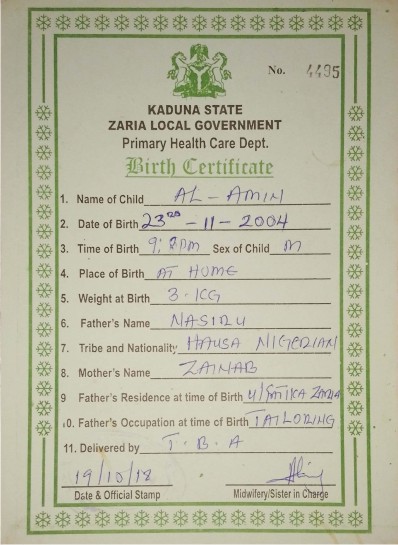 No. 4495
KADUNA STATE
ZARIA LOCAL GOVERNMENT
Primary Health Care Dept.
Birth Certificate
1. Name of Child AL-AMIN
2. Date of Birth 23RD - 11 - 2004
3. Time of Birth 9: PM Sex of Child M
4. Place of Birth AT HOME
5. Weight at Birth 3.KG
6. Father's Name NASIRU
7. Tribe and Nationality HAUSA NIGERIAN
8. Mother's Name ZAINAB
9 Father's Residence at time of Birth ZARIA
10. Father's Occupation at time of Birth TAILORING
11. Delivered by T.B.A
19/10/18
Date & Official Stamp Midwifery/Sister in Charge